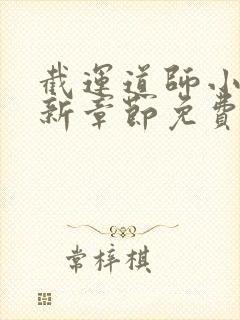 截運道師小
新章節免費
常梓棋